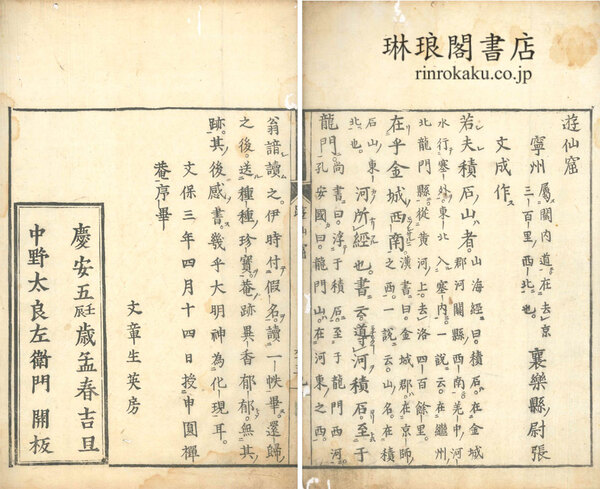 琳琅閣書店
rinrokaku.co.jp
遊仙窟
寧州屬關內道在去京三百里西北也襄樂縣尉張
文成作
若夫積石山者山海經曰積石在金城郡河關縣西南羌中河
水行塞外東北入塞內一說云在繼州
北龍門縣從黃河上去洛四百餘里
在乎金城西南漢書曰金城郡在京師西一說云山名在積
石山東北也河所經也書云導河積石至于
龍門尚書曰浮于積石至于龍門西河孔安國曰龍門山在河東之西
翁諳讀之伊時付假名讀一帙畢還歸
之後送種種珍寶菴跡異香郁郁無其
跡其後感書幾乎大明神為化現耳
文保三年四月十四日授申圓禪
菴序畢
文章生英房
慶安五壬辰歲孟春吉旦
中野太良左衛門 開板